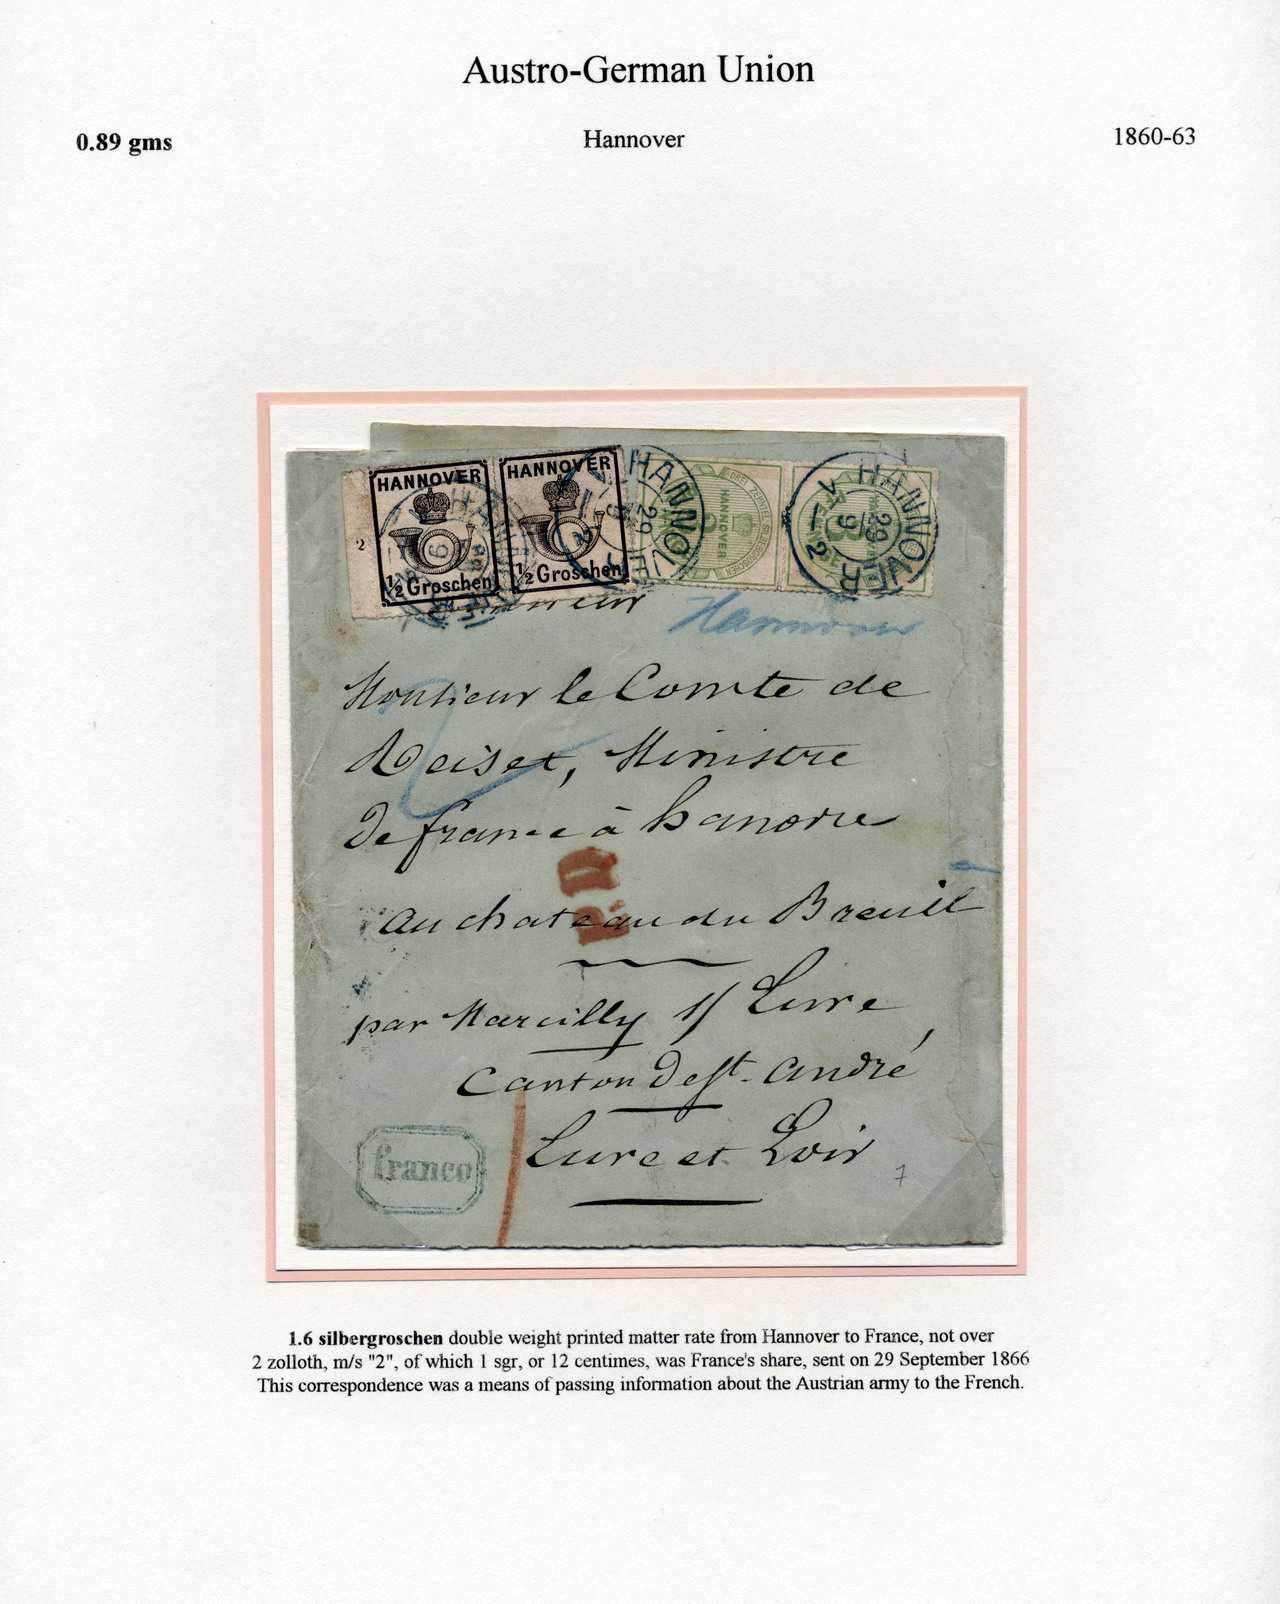 Austro-German Union
0.89 gms
Hannover
1860-63
HANNOVER
1/2 Groschen
2
HANNOVER
1/2 Groschen
HANNOVER
DREI ZEHNTEL SILBERGROSCHEN
HANNOVER
29
9
V
1-2
HANNOVER
29
9
V
1-2
Hannover
2
Monsieur le Comte de
Reiset, Ministre
de france à hanovre
P.D.
au chateau du Breuil
par Marcilly s/ Eure
Canton de St. André,
Eure et Loir
franco
7
1.6 silbergroschen double weight printed matter rate from Hannover to France, not over
2 zolloth, m/s "2", of which 1 sgr, or 12 centimes, was France's share, sent on 29 September 1866
This correspondence was a means of passing information about the Austrian army to the French.